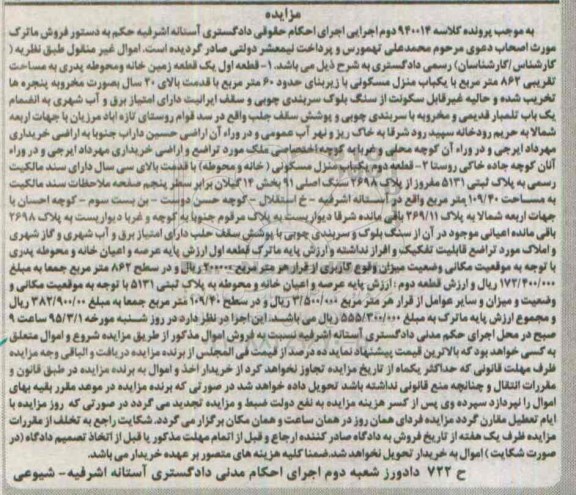 مزایده
به موجب پرونده کلاسه ۹۴۰۰۱۴ دوم اجرایی اجرای احکام حقوقی دادگستری آستانه اشرفیه حکم به دستور فروش ماترک
مورث اصحاب دعوی مرحوم محمدعلی تهمورس و پرداخت نیمعشر دولتی صادر گردیده است. اموال غیر منقول طبق نظریه (
کارشناس/کارشناسان) رسمی دادگستری به شرح ذیل می باشد. ۱- قطعه اول یک قطعه زمین خانه ومحوطه پدری به مساحت
تقریبی ۸۶۲ متر مربع با یکباب منزل مسکونی با زیربنای حدود ۶۰ متر مربع با قدمت بالای ۲۰ سال بصورت مخروبه پنجره ها
تخریب شده و حالیه غیرقابل سکونت از سنگ بلوک سربندی چوبی و سقف ایرانیت دارای امتیاز برق و آب شهری به انضمام
یک باب تلمبار قدیمی و مخروبه با سربندی چوبی و پوشش سقف حلب واقع در سد قوام روستای تازه اباد مرزیان با جهات اربعه
شمالا به حریم رودخانه سپید رود شرقا به خاک ریز و نهر آب عمومی و در وراء آن اراضی حسین داراب جنوبا به اراضی خریداری
مهرداد ایرجی و در وراء آن کوچه محلی و غربا به کوچه اختصاصی ملک مورد تراضع و اراضی خریداری مهرداد ایرجی و در وراء
آنان کوچه جاده خاکی روستا ۲- قطعه دوم یکباب منزل مسکونی (خانه و محوطه) با قدمت بالای سی سال دارای سند مالکیت
رسمی به پلاک ثبتی ۵۱۳۱ مفروز از پلاک ۲۶۹۸ سنگ اصلی ۹۱ بخش ۱۴ گیلان برابر سطر پنجم صفحه ملاحظات سند مالکیت
به مساحت ۱۰۹/۴۰ متر مربع واقع در آستانه اشرفیه - خ استقلال - کوچه حسن دوست - بن بست سوم - کوچه احسان با
جهات اربعه شمالا به پلاک ۲۶۹/۱۱ باقی مانده شرقا دیواریست به پلاک مرقوم جنوبا به کوچه و غربا دیواریست به پلاک ۲۶۹۸
باقی مانده اعیانی موجود در آن از سنگ بلوک و سربندی چوبی با پوشش سقف حلب دارای امتیاز برق و آب شهری و گاز شهری
و املاک مورد تراضع قابلیت تفکیک و افراز نداشته و ارزش پایه ماترک قطعه اول ارزش پایه عرصه و اعیان خانه و محوطه پدری
با توجه به موقعیت مکانی وضعیت میزان وقوع کاربری از قرار هر متر مربع ۲۰۰۰۰۰ ریال و در سطح ۸۶۲ متر مربع جمعا به مبلغ
۱۷۲/۴۰۰/۰۰۰ ریال و ارزش قطعه دوم: ارزش پایه عرصه و اعیان خانه و محوطه به پلاک ثبتی ۵۱۳۱ با توجه به موقعیت مکانی و
وضعیت و میزان و سایر عوامل از قرار هر متر مربع ۳/۵۰۰/۰۰۰ ریال و در سطح ۱۰۹/۴۰ متر مربع جمعا به مبلغ ۳۸۲/۹۰۰/۰۰ ریال
و مجموع ارزش پایه ماترک به مبلغ ۵۵۵/۳۰۰/۰۰۰ ریال می باشد. این اجرا در نظر دارد در روز شنبه مورخه ۹۵/۳/۱ ساعت ۹
صبح در محل اجرای حکم مدنی دادگستری آستانه اشرفیه نسبت به فروش اموال مذکور از طریق مزایده شروع و اموال متعلق
به کسی خواهد بود که بالاترین قیمت پیشنهاد نماید ده درصد از قیمت فی المجلس از برنده مزایده دریافت و الباقی وجه مزایده
ظرف مهلت قانونی که حداکثر یکماه از تاریخ مزایده تجاوز نخواهد کرد از خریدار اخذ و اموال به برنده مزایده در طبق قانون و
مقررات انتقال و چنانچه منع قانونی نداشته باشد تحویل داده خواهد شد. در صورتی که برنده مزایده در موعد مقرر بقیه بهای
اموال را نپردازد سپرده وی پس از کسر هزینه مزایده به نفع دولت ضبط و مزایده تجدید می گردد در صورتی که روز مزایده با
ایام تعطیل مقارن گردد مزایده فردای همان روز در همان ساعت و همان مکان برگزار می گردد. شکایت راجع به تخلف از مقررات
مزایده ظرف یک هفته از تاریخ فروش به دادگاه صادر کننده ارجاع و قبل از اتمام مهلت مذکور یا قبل از اتخاذ تصمیم دادگاه (در
صورت شکایت) اموال به خریدار تحویل نخواهد شد. ضمنا کلیه هزینه های متصور بر عهده خریدار می باشد.
ح ۷۲۲ دادورز شعبه دوم اجرای احکام مدنی دادگستری آستانه اشرفیه - شیوعی